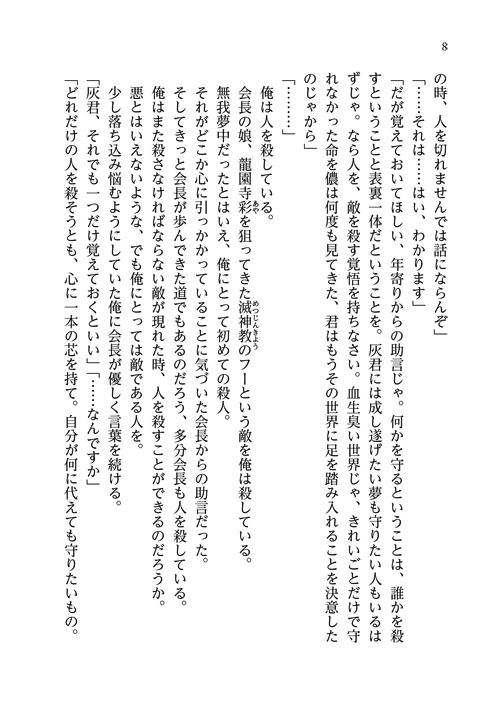 8
の時、人を切れませんでは話にならんぞ」
「……それは……はい、わかります」
「だが覚えておいてほしい、年寄りからの助言じゃ。何かを守るということは、誰かを殺
すということと表裏一体だということを。灰君には成し遂げたい夢も守りたい人もいるは
ずじゃ。なら人を、敵を殺す覚悟を持ちなさい。血生臭い世界じゃ、きれいごとだけで守
れなかった命を儂は何度も見てきた、君はもうその世界に足を踏み入れることを決意した
のじゃから」
「………」
俺は人を殺している。
会長の娘、龍園寺彩を狙ってきた滅神教のフーという敵を俺は殺している。
あや
めつじんきよう
無我夢中だったとはいえ、俺にとって初めての殺人。
それがどこか心に引っかかっていることに気づいた会長からの助言だった。
そしてきっと会長が歩んできた道でもあるのだろう、多分会長も人を殺している。
俺はまた殺さなければならない敵が現れた時、人を殺すことができるのだろうか。
悪とはいえないような、でも俺にとっては敵である人を。
少し落ち込み悩むようにしていた俺に会長が優しく言葉を続ける。
「灰君、それでも一つだけ覚えておくといい」「……なんですか」
「どれだけの人を殺そうとも、心に一本の芯を持て。自分が何に代えても守りたいもの。